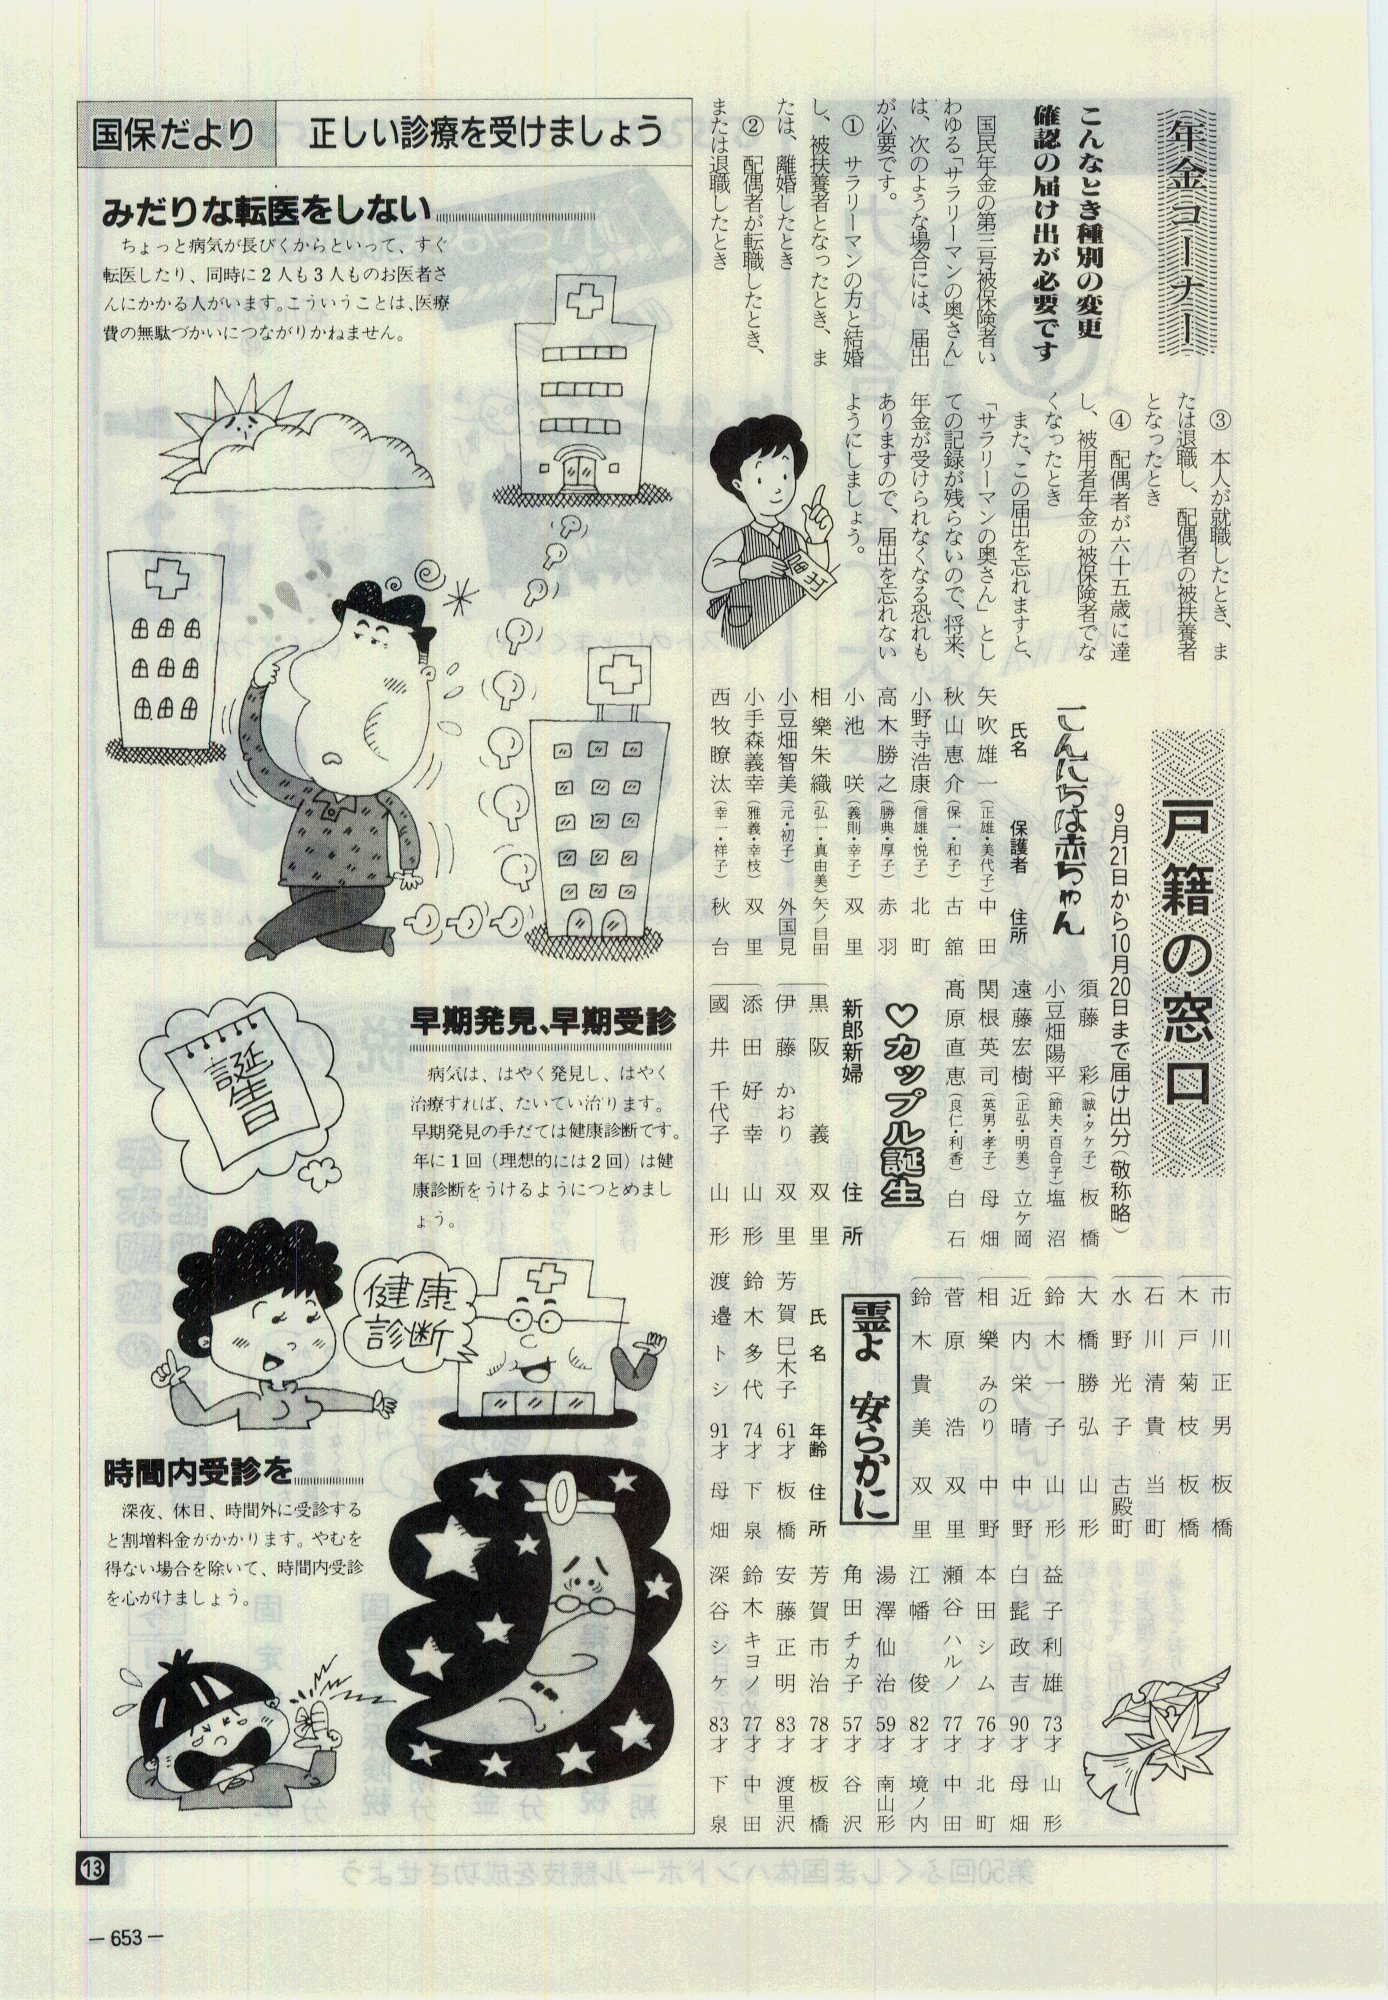 年金コーナー
こんなとき種別の変更
確認の届け出が必要です
国民年金の第三号被保険者い
わゆる「サラリーマンの奥さん」
は、次のような場合には、届出
が必要です。
① サラリーマンの方と結婚
し、被扶養者となったとき、ま
たは、離婚したとき
② 配偶者が転職したとき、
または退職したとき
③ 本人が就職したとき、ま
たは退職し、配偶者の被扶養者
となったとき
④ 配偶者が六十五歳に達
し、被用者年金の被保険者でな
くなったとき
また、この届出を忘れますと、
「サラリーマンの奥さん」とし
ての記録が残らないので、将来、
年金が受けられなくなる恐れも
ありますので、届出を忘れない
ようにしましょう。
届エ
戸籍の窓口
9月21日から10月20日まで届け出分(敬称略)
こんにちは赤ちゃん
氏名 保護者 住所
矢吹雄一(正雄・美代子)中田
秋山恵介(保一・和子)古舘
小野寺浩康(信雄・悦子)北町
高木勝之(勝典・厚子)赤羽
小池咲(義則・幸子)双里
相樂朱織(弘一・真由美)矢ノ目田
小豆畑智美(元・初子)外国見
小手森義幸(雅義・幸枝)双里
西牧瞭汰(幸一・祥子)秋台
須藤彩(誠・タケ子)板橋
小豆畑陽平(節夫・百合子)塩沼
遠藤宏樹(正弘・明美)立ケ岡
関根英司(英男・孝子)母畑
髙原直恵(良仁・利香)白石
♡カップル誕生
新郎新婦 住所
黒阪義 双里
伊藤かおり 双里
添田好幸 山形
國井千代子 山形
市川正男 板橋
木戸菊枝 板橋
石川清貴 当町
水野光子 古殿町
大橋勝弘 山形
鈴木一子 山形
近内栄晴 中野
相樂みのり 中野
菅原浩 双里
鈴木貴美 双里
霊よ 安らかに
氏名 年齢 住所
芳賀巳木子 61才 板橋
鈴木多代 74才 下泉
渡邉トシ 91才 母畑
益子利雄 73才 山形
白髭政吉 90才 母畑
本田シム 76才 北町
瀬谷ハルノ 77才 中田
江幡俊 82才 境ノ内
湯澤仙治 59才 南山形
角田チカ子 57才 谷沢
芳賀市治 78才 板橋
安藤正明 83才 渡里沢
鈴木キヨノ 77才 中田
深谷シケ 83才 下泉
国保だより 正しい診療を受けましょう
みだりな転医をしない
ちょっと病気が長びくからといって、すぐ
転医したり、同時に2人も3人ものお医者さ
んにかかる人がいます。こういうことは、医療
費の無駄づかいにつながりかねません。
早期発見、早期受診
病気は、はやく発見し、はやく
治療すれば、たいてい治ります。
早期発見の手だては健康診断です。
年に1回(理想的には2回)は健
康診断をうけるようにつとめまし
ょう。
誕生日
健康
診断
時間内受診を
深夜、休日、時間外に受診する
と割増料金がかかります。やむを
得ない場合を除いて、時間内受診
を心がけましょう。
13
—653—